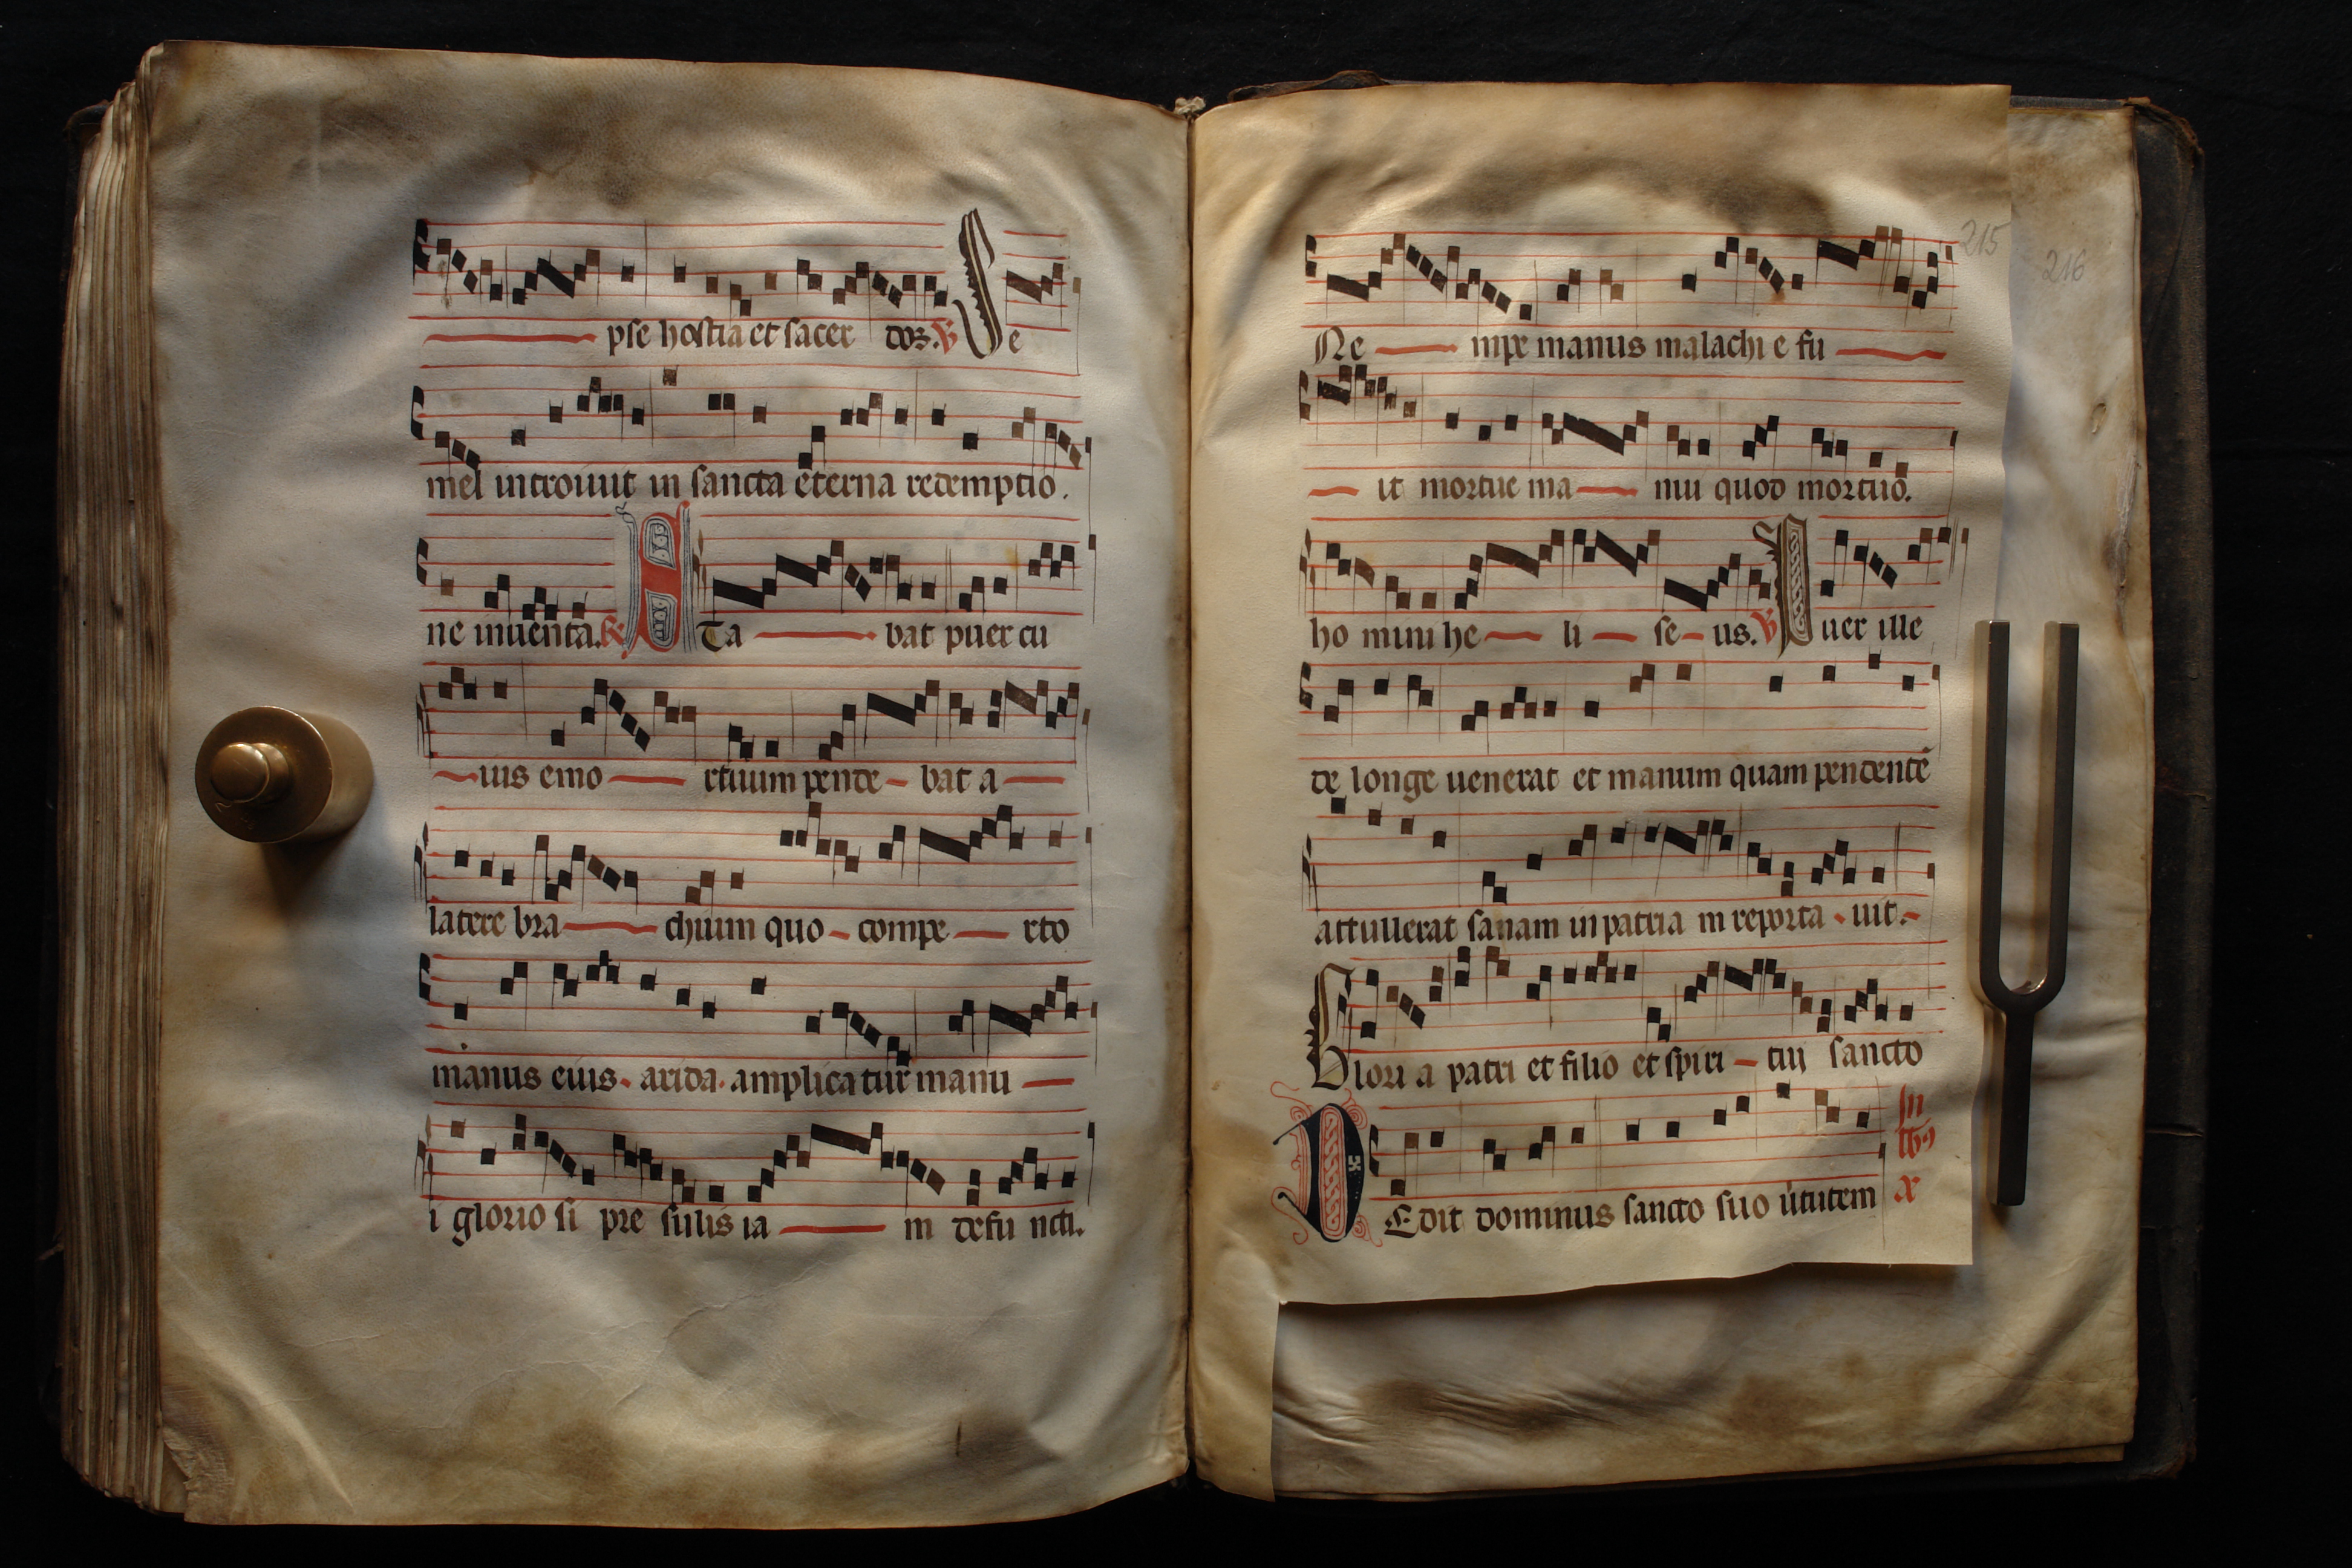 pse hostia et sacer dos. V Se
mel introiuit in sancta eterna redemptio.
ne inuenta. R Sta bat puer cu
ius emo rtuum pende bat a
latere bra chium quo compe rto
manus eius arida amplicatur manu
i glorio si pre sulis ia m defu ncti.
215
216
Ne mpe manus malachi e fu
it mortue ma nui quod mortuo.
ho mini he li se us. V Puer ille
de longe uenerat et manum quam pendentē
attullerat sanam in patria m reporta uit.
Glori a patri et filio et spiri tui sancto
DEdit dominus sancto suo